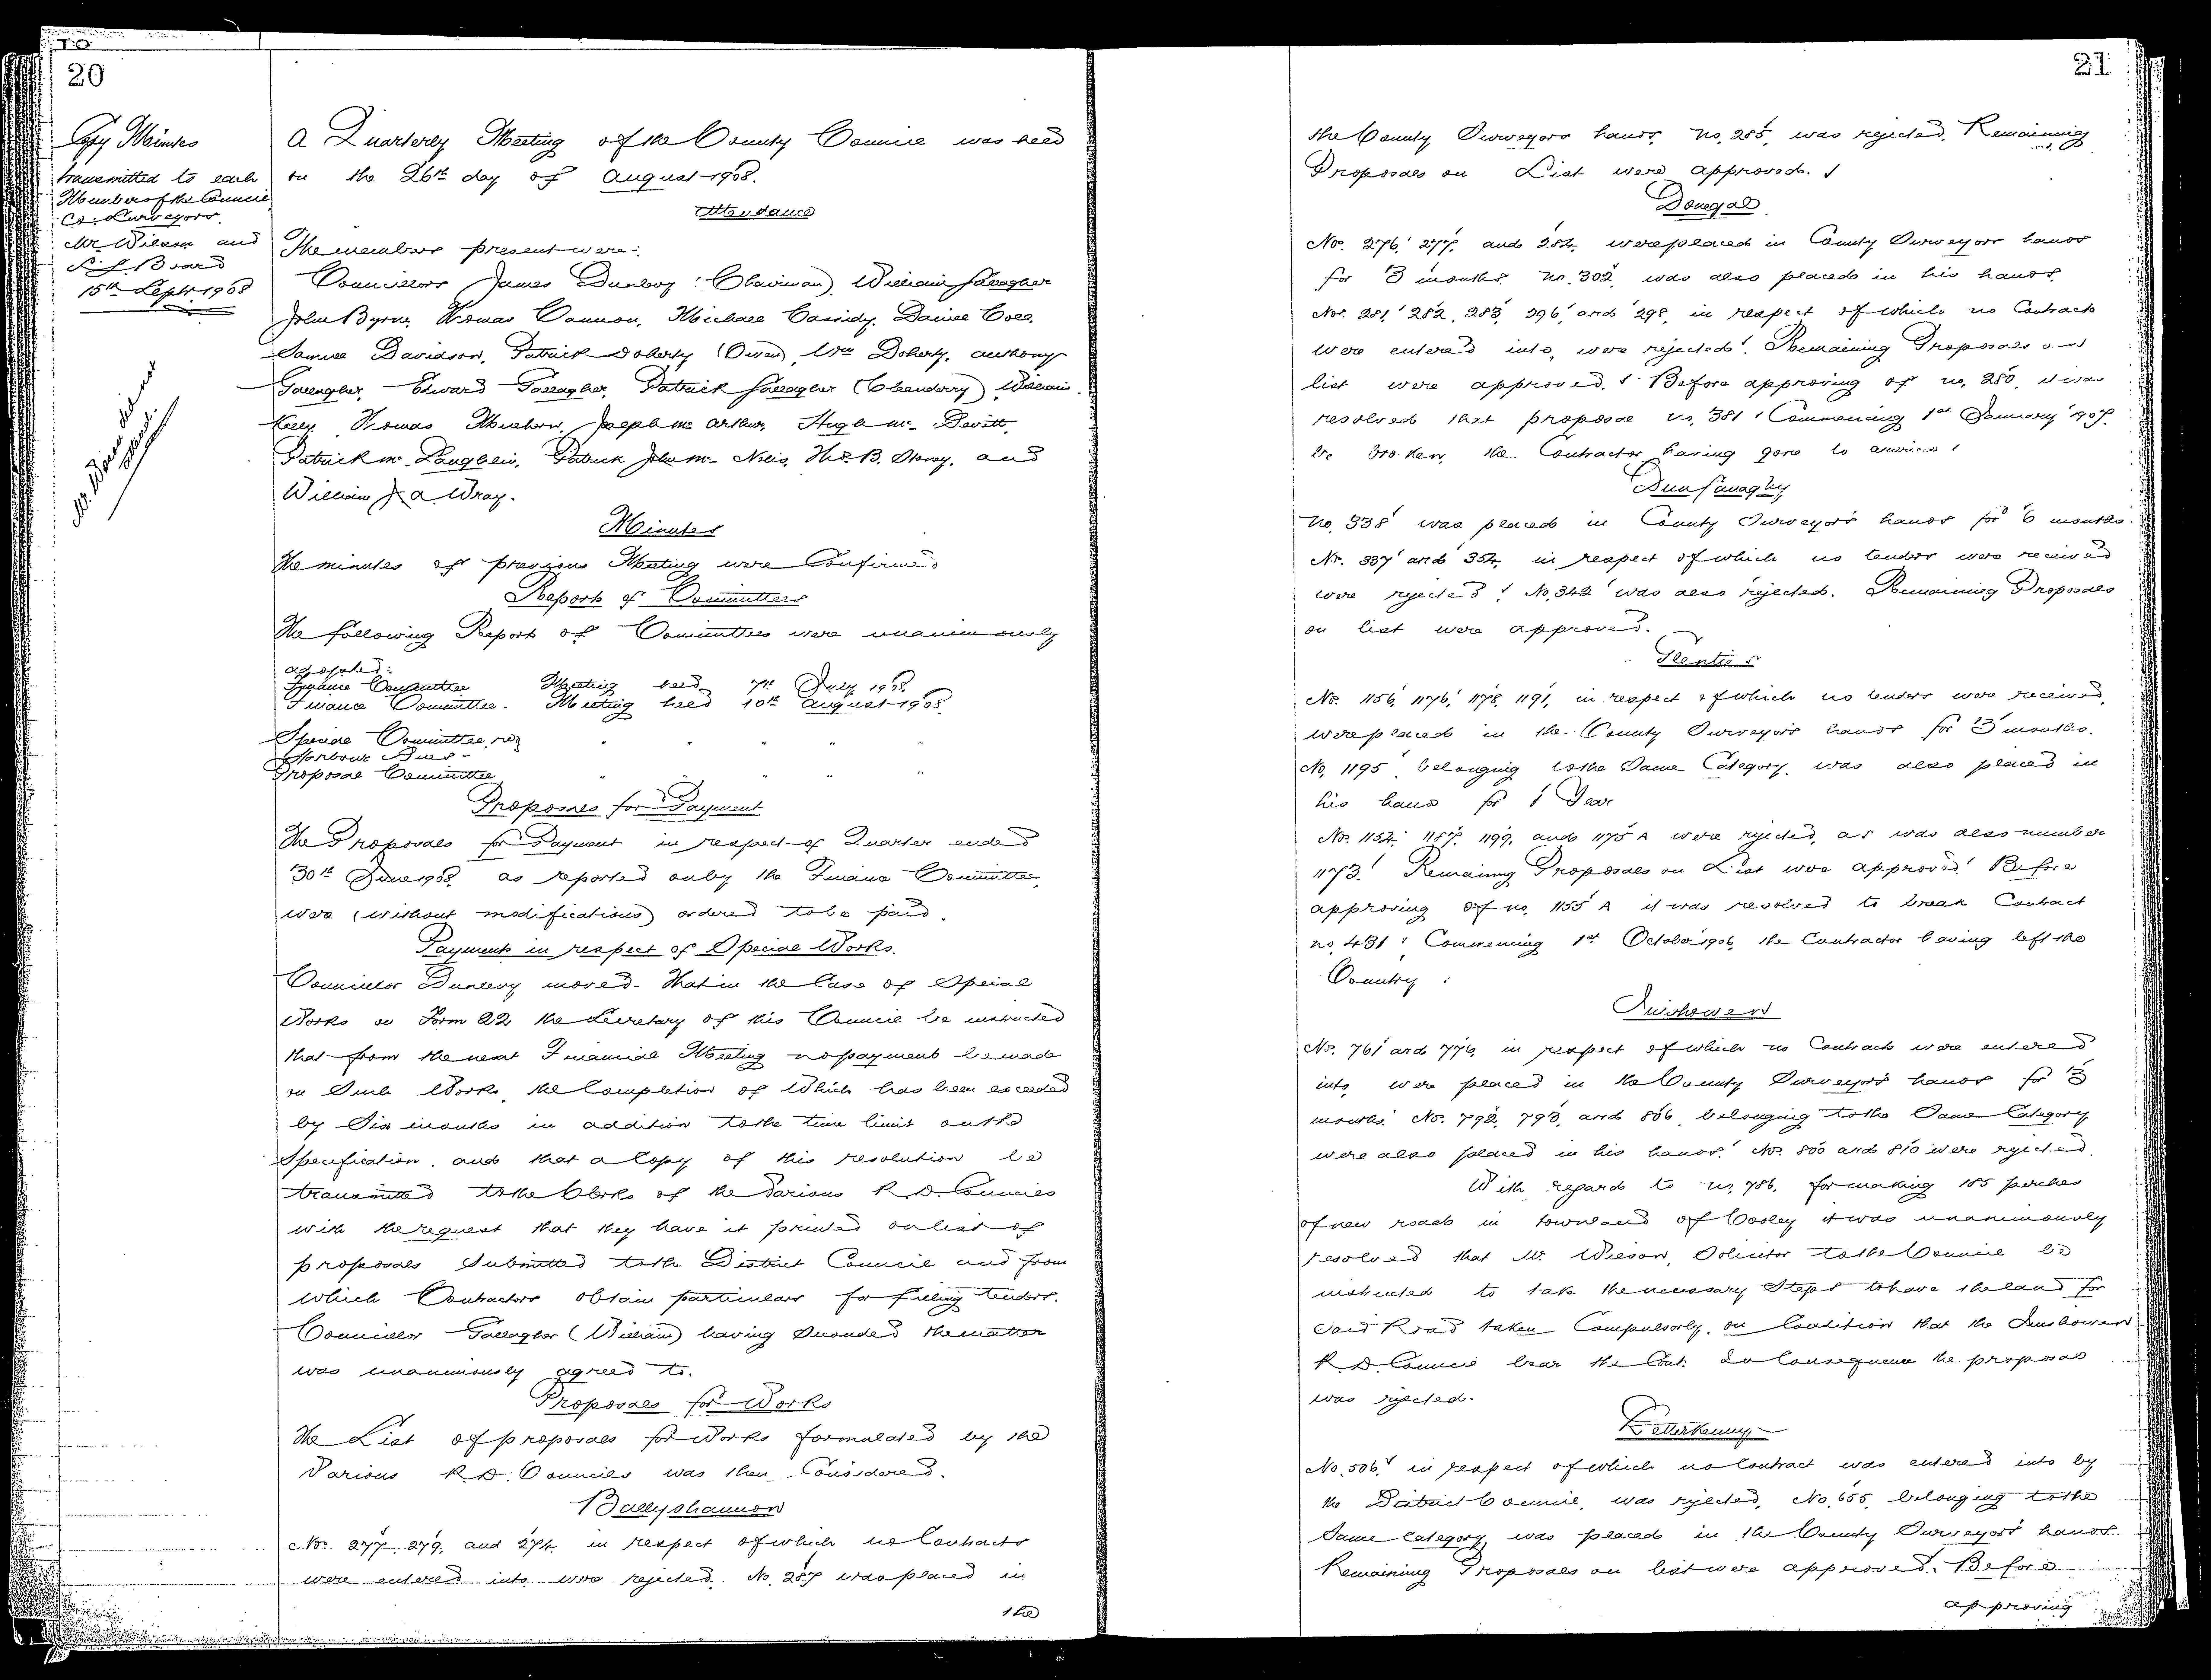 20
Copy Minutes
transmitted to each
Member of the Council
Co. Surveyors
Mr Wilson and
Board
15th Sept 1908
A Quarterly Meeting of the County Council was held
on the 26th day of August 1908.
Attendance
The members present were:
Councillors James Dunlevy (Chairman), William Gallagher
John Byrne, Thomas Cannon, Michael Cassidy, Daniel Coll,
Samuel Davidson, Patrick Doherty (Owen), Wm Doherty, Anthony
Gallagher, Edward Gallagher, Patrick Gallagher (Cleendery) William
Kelly, Thomas Meehan, Joseph McArthur, Hugh McDevitt,
Patrick McLaughlin, Patrick John McNelis, Thos. B. Stoney, and
William J A Wray.
Minutes
The minutes of previous Meeting were Confirmed
Report of Committees
The following Report of Committees were unanimously
adopted:
Finance Committee Meeting held 7th July 1908.
Finance Committee. Meeting held 10th August 1908
Special Committee re " " " " "
Harbour Dues -
Proposal Committee " " " "
Proposals for Payment
The Proposals for Payment in respect of Quarter ended
30th June 1908, as reported on by the Finance Committee,
were (without modifications) ordered to be paid.
Payments in respect of Special Works.
Councillor Dunlevy moved- That in the Case of Special
Works on Form 22 the Secretary of this Council be instructed
that from the next Financial Meeting no payment be made
on Such Works, the Completion of Which has been exceeded
by Six months in addition to the time limit on the
Specification, and that a Copy of this resolution be
transmitted to the Clerks of the Various R. D. Councils
with the request that they have it printed on list of
proposals Submitted to the District Council and from
which Contractors obtain particulars for filling tenders.
Councillor Gallagher (William) having Seconded the matter
was unanimously agreed to.
Proposals for Works
The List of proposals for Works formulated by the
Various R.D. Councils was then Considered.
Ballyshannon
Nos. 277, 279, and 274 in respect of which no Contracts
were entered into were rejected. No. 287 was placed in
the
21
the County Surveyors hands, No. 285, was rejected, Remaining
Proposals on List were approved.
Donegal
Nos. 276, 277, and 284, were placed in County Surveyors hands
for 3 months. No. 302, was also placed in his hands.
Nos. 281, 282, 283, 296, and 298, in respect of which no Contracts
were entered into, were rejected. Remaining Proposals on
list were approved. Before approving of no. 280, it was
resolved that proposal No. 381 Commencing 1st January 1907,
be broken, the Contractor having gone to America
Dunfanaghy
No. 338 was placed in County Surveyors hands for 6 months
Nos. 337 and 354, in respect of which no tenders were received
were rejected. No. 342 was also rejected. Remaining Proposals
on list were approved.
Glenties
Nos. 1156, 1176, 1178, 1191, in respect of which no tenders were received,
were placed in the County Surveyors hands for 3 months.
No. 1195 belonging to the Same Category, was also placed in
his hands for 1 Year
Nos. 1154, 1187, 1199, and 1175 A were rejected, as was also number
1173. Remaining Proposals on List were approved. Before
approving of no. 1155 A it was resolved to break Contract
no, 431 Commencing 1st October 1906, the Contractor having left the
Country
Inishowen
Nos. 761 and 776, in respect of which no Contracts were entered
into, were placed in the County Surveyors hands for 3
months. Nos. 792, 793, and 806, belonging to the Same Category
were also placed in his hands. Nos. 800 and 810 were rejected.
With regards to no, 786, for making 185 perches
of new road in townland of Cooley it was unanimously
resolved that Mr. Wilson, Solicitor to the Council be
instructed to take the necessary Steps to have the land for
Said Road taken Compulsorly, on Condition that the Inishowen
R D Council bear the Cost. In Consequence the proposal
was rejected.
Letterkenny
No. 506, in respect of which no Contract was entered into by
the District Council, was rejected, No. 655, belonging to the
Same Category, was placed in the County Surveyors hands.
Remaining Proposals on list were approved. Before
approving